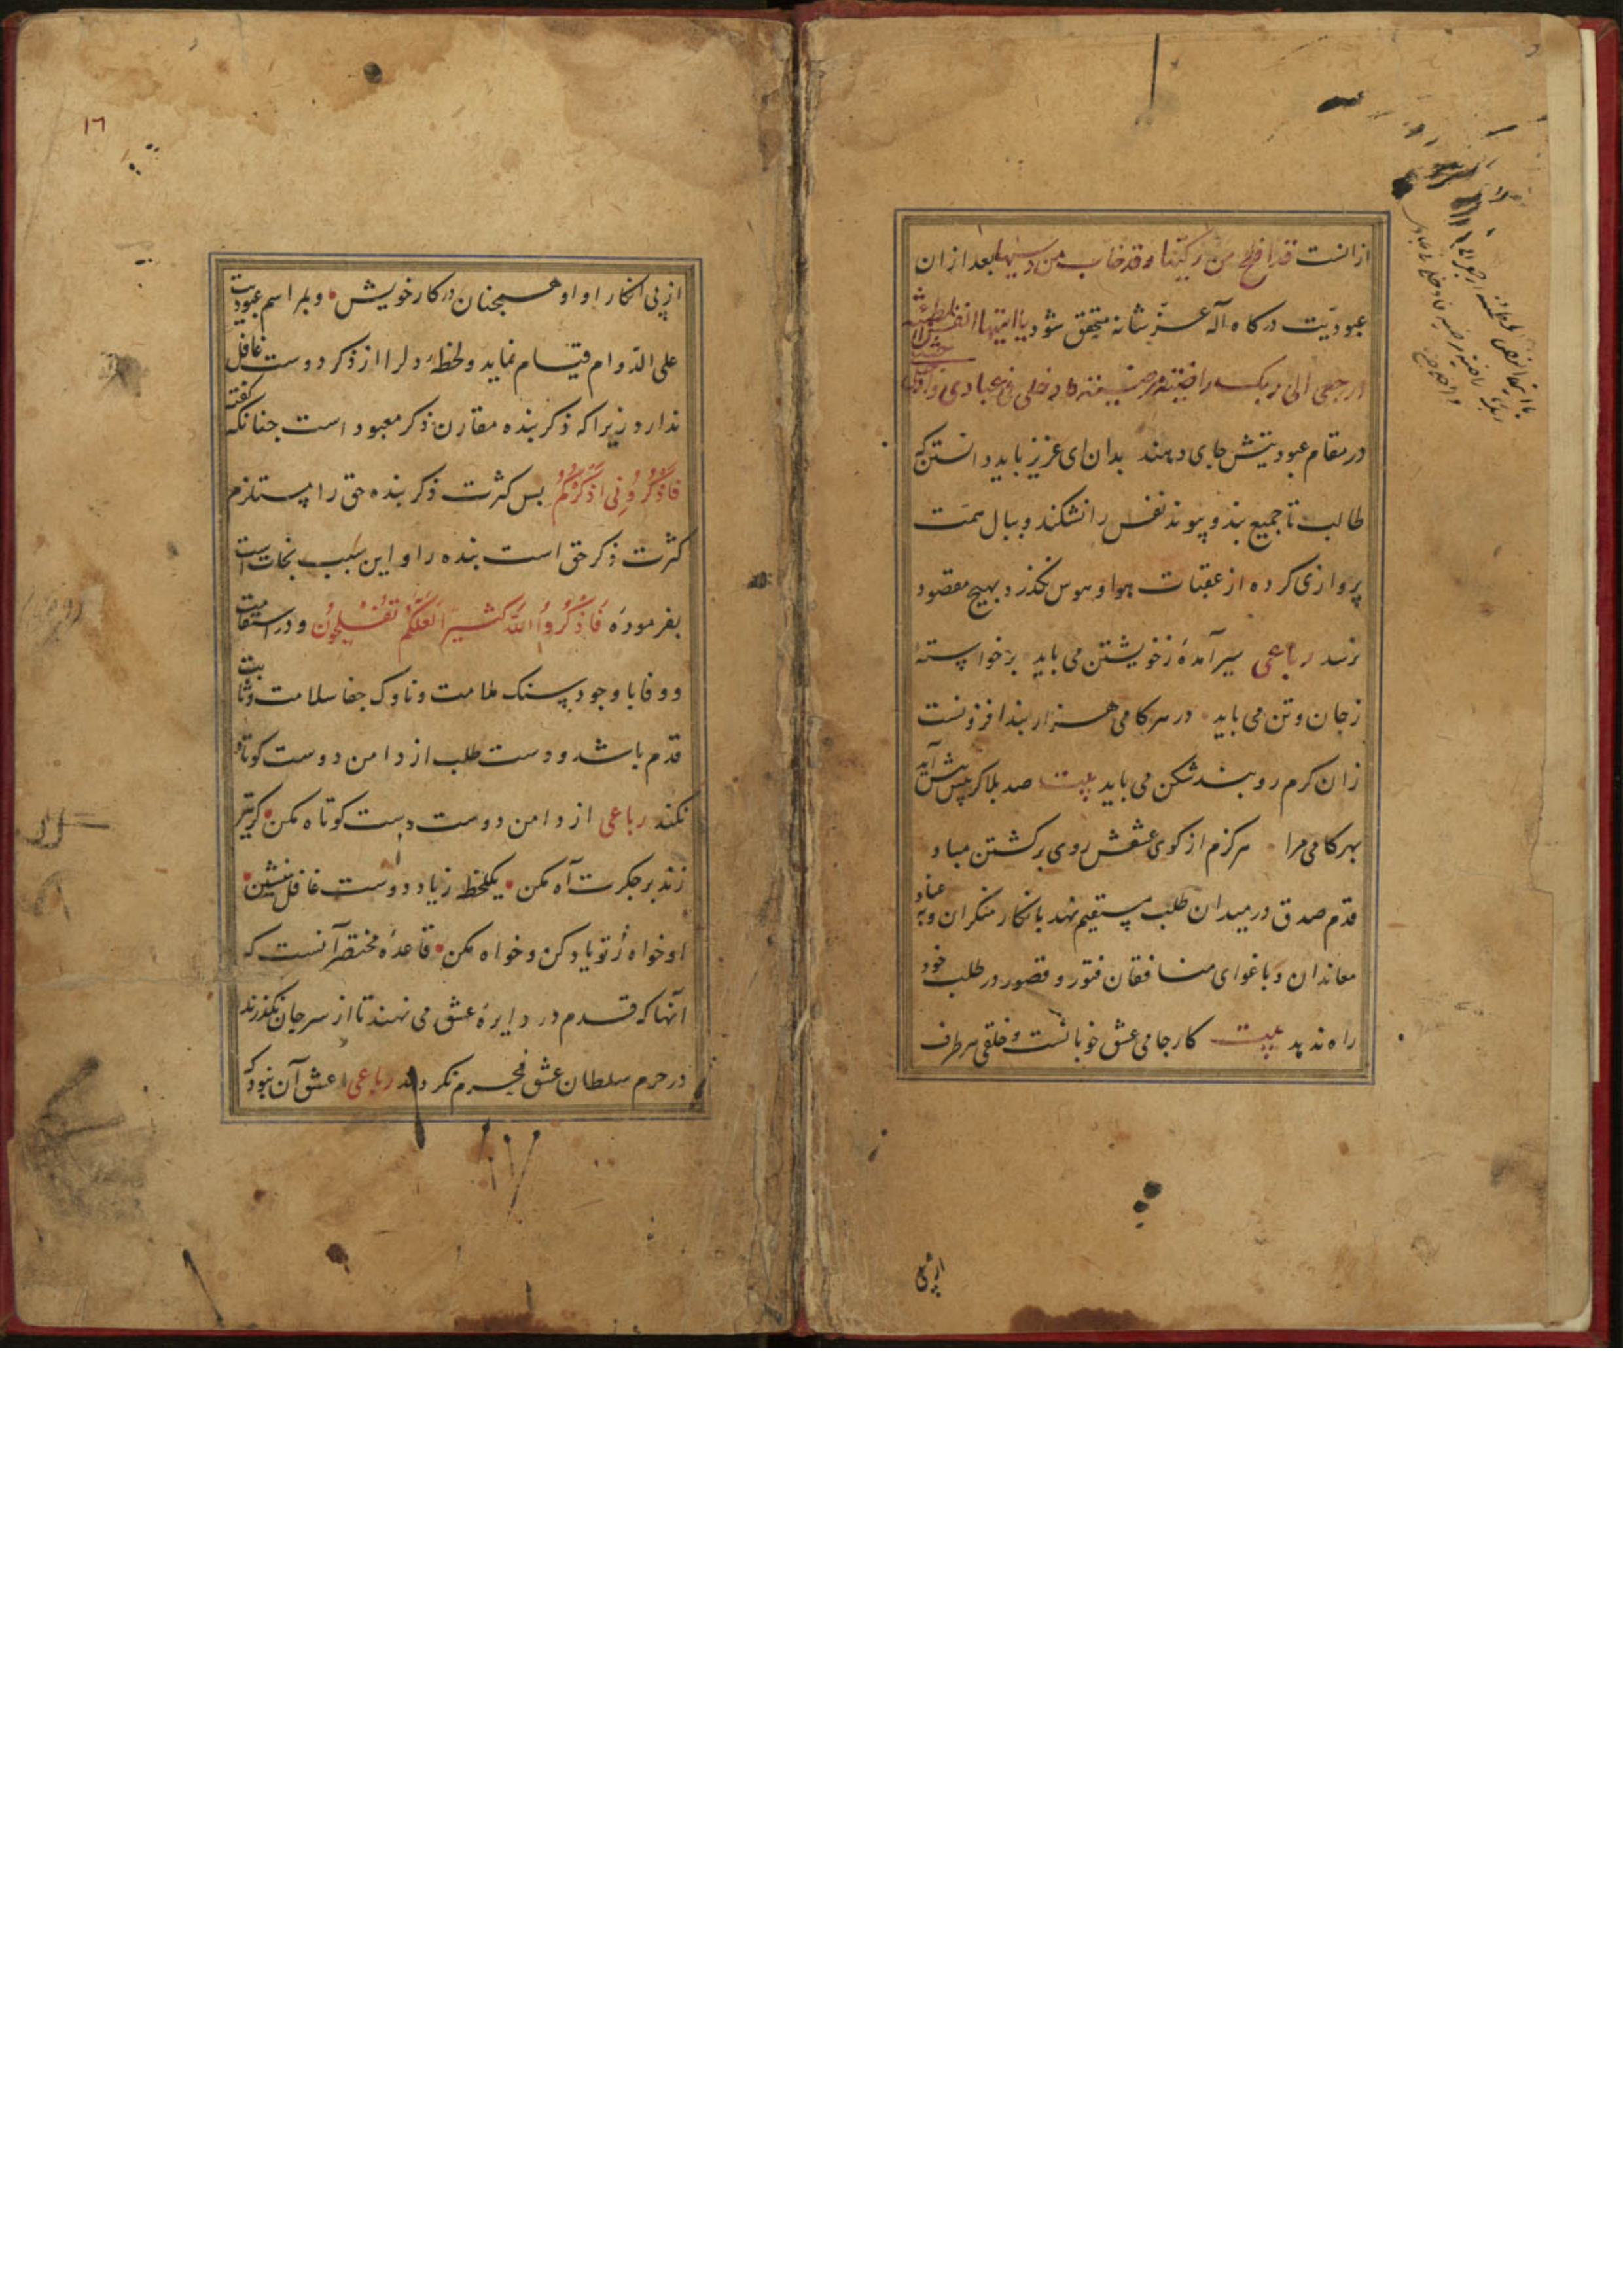 ازانست قد افلح من زكيها وقد خاب من دسيها بعد ازان
عبوديّت دركاه آله عزّ شانه متحقق شود يا ايتها النفس المطمئنه
ارجعى الى ربك راضية مرضية فادخلى فى عبادى وادخلى جنتى
در مقام عبوديتش جاى دهند بدان اى عزيز بايد دانستن كه
طالب تا جميع بند و پيوند نفس را نشكند و ببال همّت
پروازى كرده از عقبات هوا و هوس نكذرد بهيچ مقصود
نرسد رباعى سير آمدهٔ زخويشتن مى بايد برخواستهٔ
زجان وتن مى بايد در هر كامى هزار بند افزونست
زان كرم رو بند شكن مى بايد بيت صد بلا كر پيش آيد
بهر كامى مرا هركزم از كوى عشقش روى بركشتن مباد
قدم صدق در ميدان طلب مستقيم نهد بانكار منكران و به عناد
معاندان و باغواى منافقان فتور و قصور در طلب خود
راه ندهد بيت كار جامى عشق خوبانست و خلقى هر طرف
از پى
١٦
از پى انكار او او همچنان در كار خويش و بمراسم عبوديت
على الدّوام قيام نمايد و لحظهٔ دلرا از ذكر دوست غافل
ندارد زيراكه ذكر بنده مقارن ذكر معبود است چنانكه كفته
فَاذْكُرُونِى اَذْكُرْكُمْ بس كثرت ذكر بنده حق را مستلزم
كثرت ذكر حق است بنده را و اين سبب نجات است
بفرمودهٔ فَاذْكُرُوا اللّٰه كثيرا لَعَلَّكُمْ تُفْلِحُونَ و در استقامت
و وفا با وجود سنك ملامت و ناوك جفا سلامت و ثابت
قدم باشد و دست طلب از دامن دوست كوتاه
نكند رباعى از دامن دوست دست كوتاه مكن كر تير
زند بر جكرت آه مكن يكلحظه زياد دوست غافل منشين
او خواه ز تو ياد كن و خواه مكن قاعدهٔ مختصر آنست كه
آنها كه قدم در دايرهٔ عشق مى نهند تا از سر جان نكذرند
در حرم سلطان عشق محرم نكردند رباعى عشق آن نبود كه